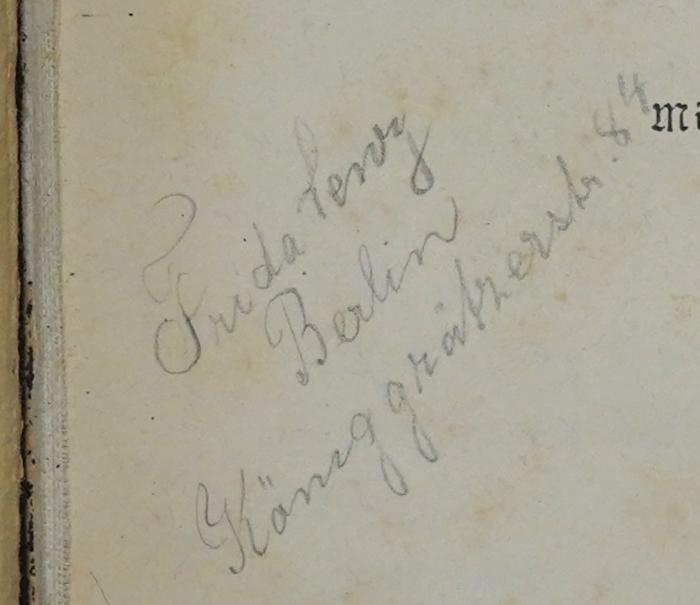 Frida Levy
Berlin
Königgrätzerstr. 84
Mi